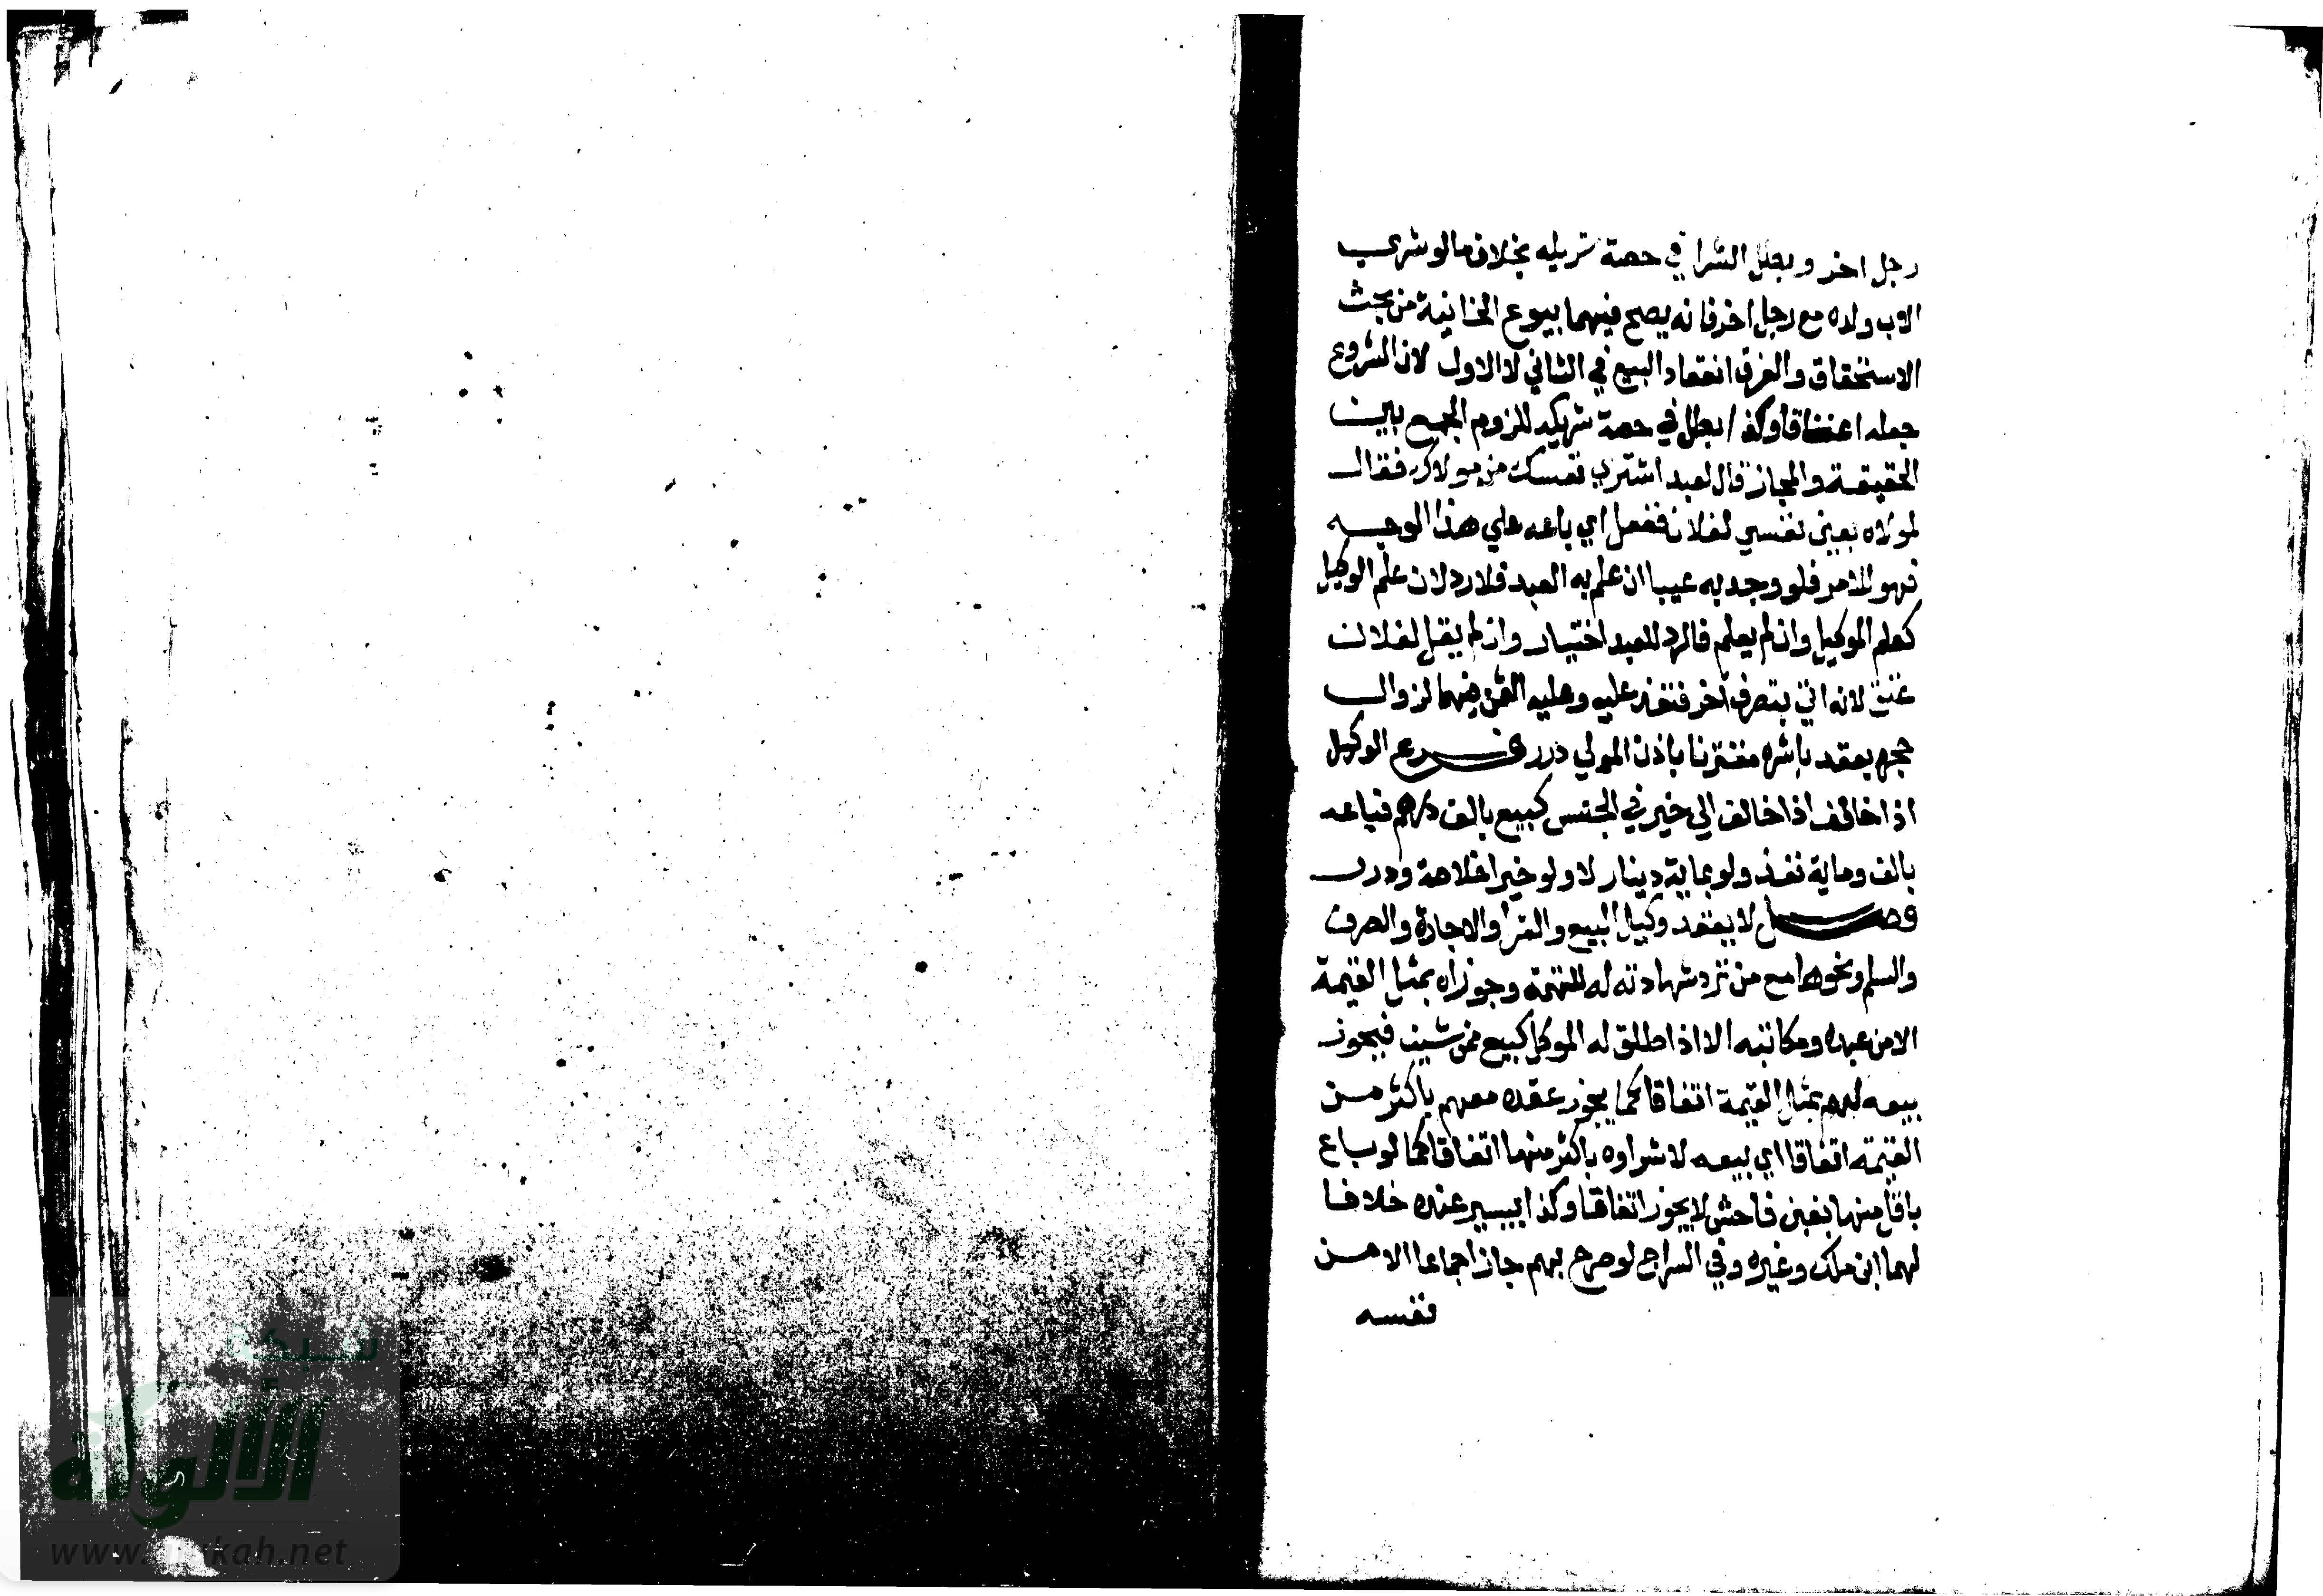 رجل اخر وبطل الشرا في حصة شريكه بخلاف مالو شري
الاب ولده مع رجل اخر فانه يصح فيهما بيوع الخانية من بحث
الاستحقاق والفرق انعقاد البيع في الثاني لا الاول لان الشروع
جعله اعتاقا وكذا بطل في حصة شريكه للزوم الجمع بين
الحقيقة والمجاز قال لعبد اشتري نفسك من مولاك فقال
لمولاه بعني نفسي لفلان ففعل اي باعه علي هذا الوجه
فهو للامر فلو وجد به عيبا ان علم به العبد فلا رد لان علم الوكيل
كعلم الموكيل وان لم يعلم فالرد للعبد اختيار وان لم يقل لفلان
عتق لانه اتي بتصرف اخر فنفذ عليه وعليه الثمن فيهما لزوال
حجره بعقد باشره مقترنا باذن المولي درر فرع الوكيل
اذا خالف اذا خالف الي خير في الجنس كبيع بالف درهم فباعه
بالف ومايه نفذ ولو بمايه دينار لا ولو خيرا خلاصة ودرر
فصل لا يعقد وكيل البيع والشرا والاجارة والصرف
والسلم ونحوها مع من ترد شهادته له للتهمة وجوزاه بمثل القيمة
الا من عبده ومكاتبه الا اذا اطلق له الموكل كبيع ممن شيت فيجوز
بيعه لهم بمثل القيمة اتفاقا كما يجوز عقده معهم باكثر من
القيمة اتفاقا اي بيعه لا شراوه باكثر منها اتفاقا كما لو باع
باقل منها بغبن فاحش لا يجوز اتفاقا وكذا بيسير عنده خلافا
لهما ابن ملك وغيره وفي السراج لو صرح بهم جاز اجماعا الا من
نفسه
شبكة
الألوكة
www.alukah.net